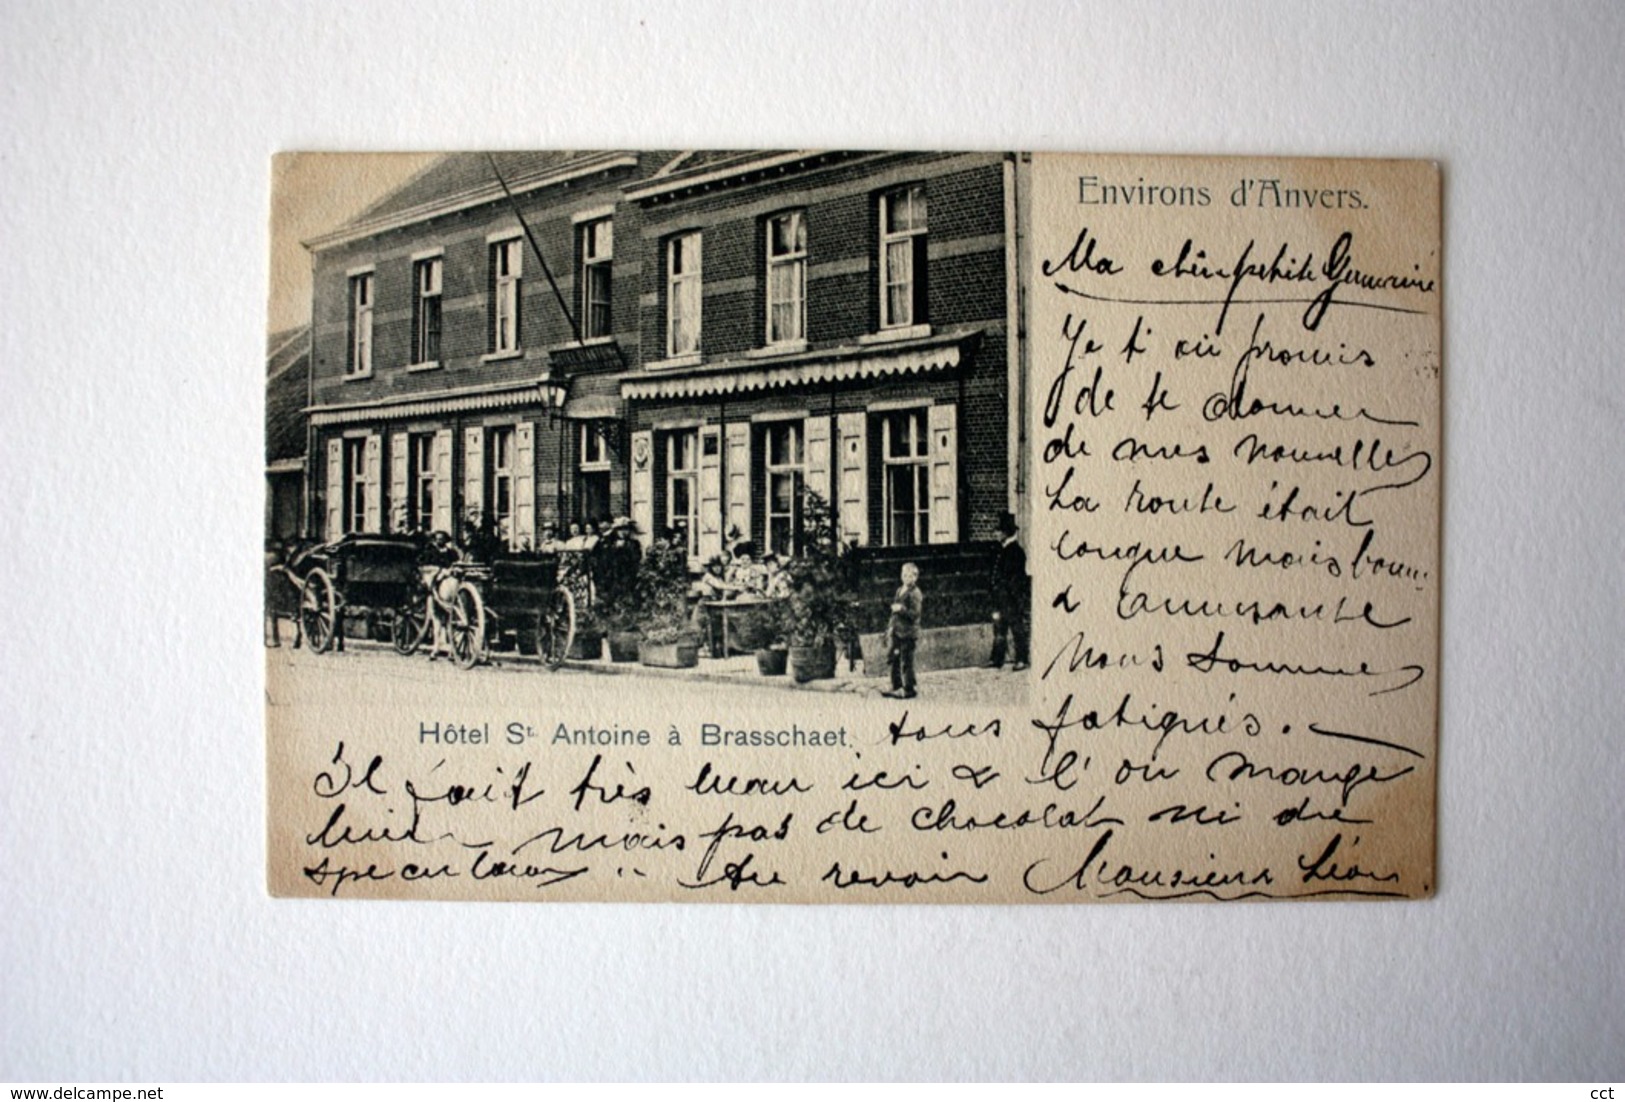 Environs d'Anvers.
Ma chère petite Germaine
Je t'ai promis
de te donner
de mes nouvelles
La route était
longue mais bonne
& amusante
Nous sommes
Hôtel St Antoine à Brasschaet.
tous fatigués. —
Il fait très beau ici & l'on mange
bien mais pas de chocolat ni de
speculaus .. Au revoir Monsieur Léon.
www.delcampe.net
cct